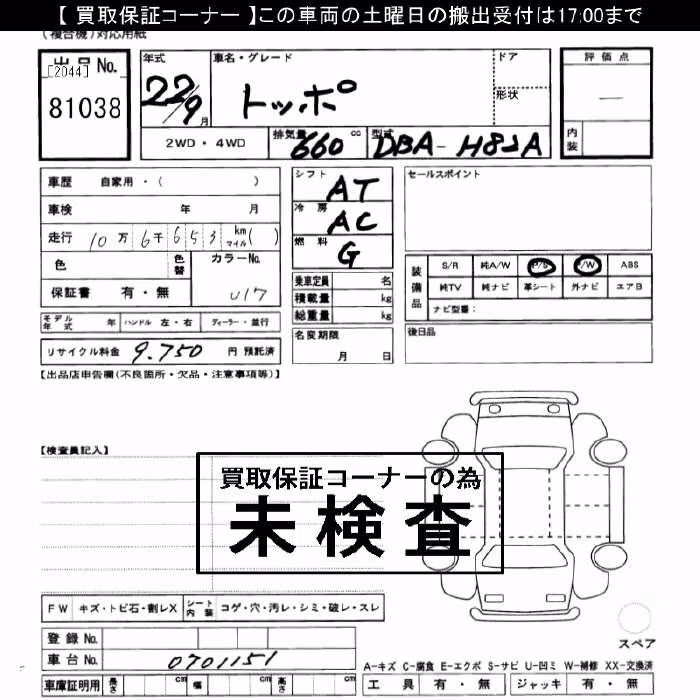 【 買取保証コーナー 】この車両の土曜日の搬出受付は17:00まで
(複合機)対応用紙
出品No.
[2044]
81038
年式 22/9 月
車名・グレード トッポ
ドア
形状
評価点
—
内装
2WD・4WD
排気量 660 cc
型式 DBA-H82A
車歴 自家用・( )
車検 年 月
走行 10万6千653 km マイル( )
色 色替 カラーNo.
保証書 有・無 U17
モデル年式 年 ハンドル 左・右 ディーラー・並行
リサイクル料金 9.750 円 預託済
シフト AT
冷房 AC
燃料 G
乗車定員 名
積載量 kg
総重量 kg
名変期限
月 日
セールスポイント
装備品
S/R 純A/W P/S P/W ABS
純TV 純ナビ 革シート 外ナビ エアB
ナビ型番:
後日品
【出品店申告欄(不良箇所・欠品・注意事項等)】
【検査員記入】
買取保証コーナーの為
未検査
FW キズ・トビ石・割レX シート内装 コゲ・穴・汚レ・シミ・破レ・スレ
登録No.
車台No. 0701151
車庫証明用 長さ cm 幅 cm 高さ cm
スペア
A-キズ C-腐食 E-エクボ S-サビ U-凹ミ W-補修 XX-交換済
工具 有・無 ジャッキ 有・無